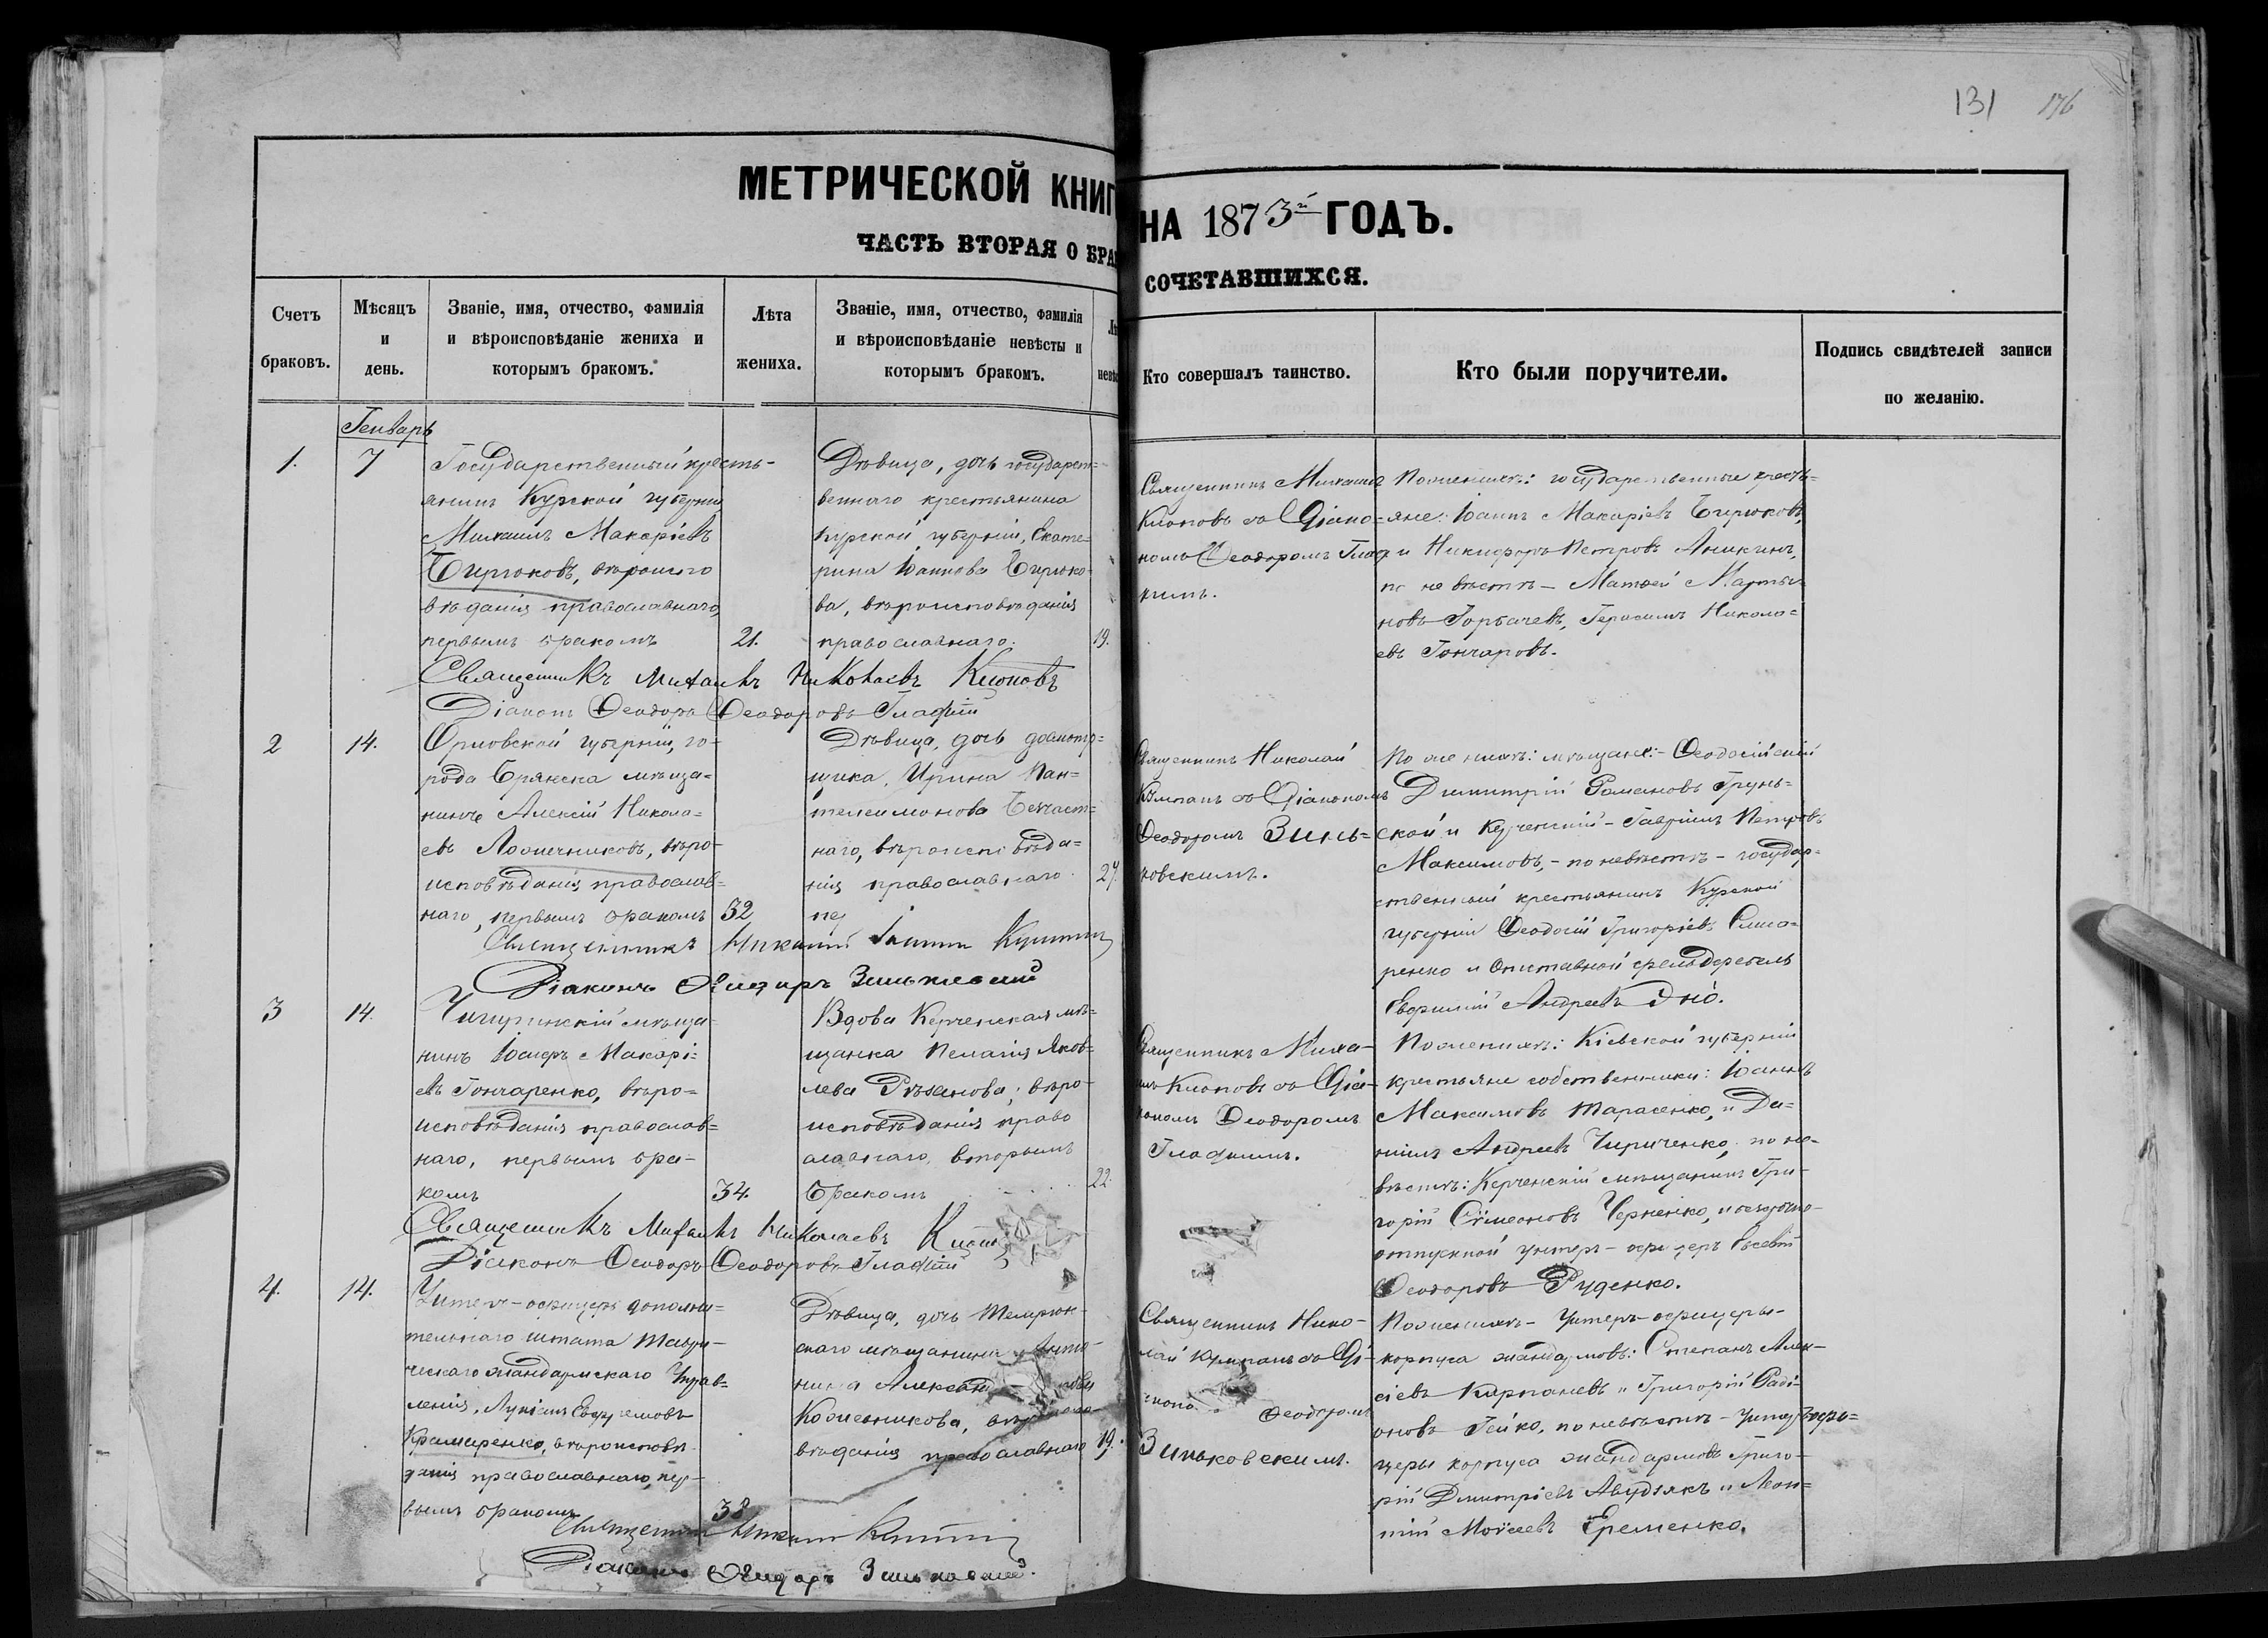 131 176
МЕТРИЧЕСКОЙ КНИГ
НА 1873й ГОДЪ.
ЧАСТЬ ВТОРАЯ О БРА
СОЧЕТАВШИХСЯ.
Счетъ
браковъ.
Мѣсяцъ
и
день.
Званіе, имя, отчество, фамилія
и вѣроисповѣданіе жениха и
которымъ бракомъ.
Лѣта
жениха.
Званіе, имя, отчество, фамилія
и вѣроисповѣданіе невѣсты и
которымъ бракомъ.
Кто совершалъ таинство.
Кто были поручители.
Подпись свидѣтелей записи
по желанію.
Генварь
1.
7
Государственный кресть-
янинъ Курской губерніи
Михаилъ Макаріевъ
Бирюковъ, вѣроиспо
вѣданія православнаго,
первымъ бракомъ
21.
Дѣвица, дочь государст=
веннаго крестьянина
Курской губерніи, Екате=
рина Іоаннова Бирюко-
ва, вѣроисповѣданія
православнаго.
19.
Священникъ Михаилъ
Клоповъ съ Діако=
номъ Ѳеодоромъ Глаф
кимъ.
По женихѣ: государственные кресть=
яне: Іоаннъ Макаріевъ Бирюковъ,
и Никифоръ Петровъ Аникинъ,
по невѣстѣ - Матвей Марты-
новъ Горбачевъ, Герасимъ Никола=
евъ Гончаровъ.
Священникъ Михаилъ Николаевъ Клоповъ
Діаконъ Ѳеодоръ Ѳеодоровъ
2
14.
Орловской губерніи, го-
рода Брянска мѣща=
нинъ Алексій Никола=
евъ Ложечниковъ, вѣро-
исповѣданія православ=
наго, первымъ бракомъ
32
Дѣвица, дочь
щика, Ирина Пан=
телеимонова Безчаст=
наго, вѣроисповѣда=
нія православнаго
27.
Священникъ Николай
съ Діакономъ
Ѳеодоромъ Зинь=
ковскимъ.
По женихѣ: мѣщане: - Ѳеодосійскій
Димитрій Романовъ Грунь=
ской и Керченскій - Гавріилъ Петровъ
Максимовъ, - по невѣстѣ - государ=
ственный крестьянинъ Курской
губерніи Ѳеодосій Григорьевъ Слюса=
ренко и Отставной фельдфебель
Евфимій Андреевъ
Священникъ
Діаконъ Ѳеодоръ Зиньковскій
3
14.
Чигиринскій мѣща-
нинъ Іосифъ Макарі=
евъ Гончаренко, вѣро=
исповѣданія православ=
наго, первымъ бра-
комъ
34.
Вдова Керченская мѣ=
щанка Пелагія Яков=
лева Рѣзанова; вѣро-
исповѣданія право
славнаго, вторымъ
бракомъ
22.
Священникъ Миха-
илъ Клоповъ съ Діа-
кономъ Ѳеодоромъ
По женихѣ: Кіевской губерніи
крестьяне собственники: Іоаннъ
Максимовъ Тарасенко, и Да=
ніилъ Андреевъ Чириченко, по не-
вѣстѣ: Керченскій мѣщанинъ Гри-
горій Сѵмеоновъ Черненко, и безсрочно-
отпускной унтеръ-офицеръ Евсевій
Ѳеодоровъ Руденко.
Священникъ Михаилъ Николаевъ
Діаконъ Ѳеодоръ Ѳеодоровъ
4.
14.
Унтеръ-офицеръ дополни=
тельнаго штата Таври-
ческаго жандармскаго Управ=
ленія, Лукіанъ Евфремовъ
Крамаренко, вѣроисповѣ
данія православнаго, пер-
вымъ бракомъ
38
Дѣвица, дочь Темрюк-
скаго мѣщанина, Анто-
нина
Кожевникова,
вѣданія православнаго
19.
Священникъ Нико-
лай съ Ді-
Ѳеодоромъ
Зиньковскимъ.
По женихѣ - Унтеръ-офицеры-
корпуса жандармовъ: Степанъ Алек-
сіевъ и Григорій Радi-
оновъ Гейко, по невѣстѣ - унтеръ-офи=
церы корпуса жандармовъ Григо-
рій Дмитріевъ и Леон=
тій Моѵсеевъ Еременко.
Діаконъ Ѳеодоръ Зиньковскій.